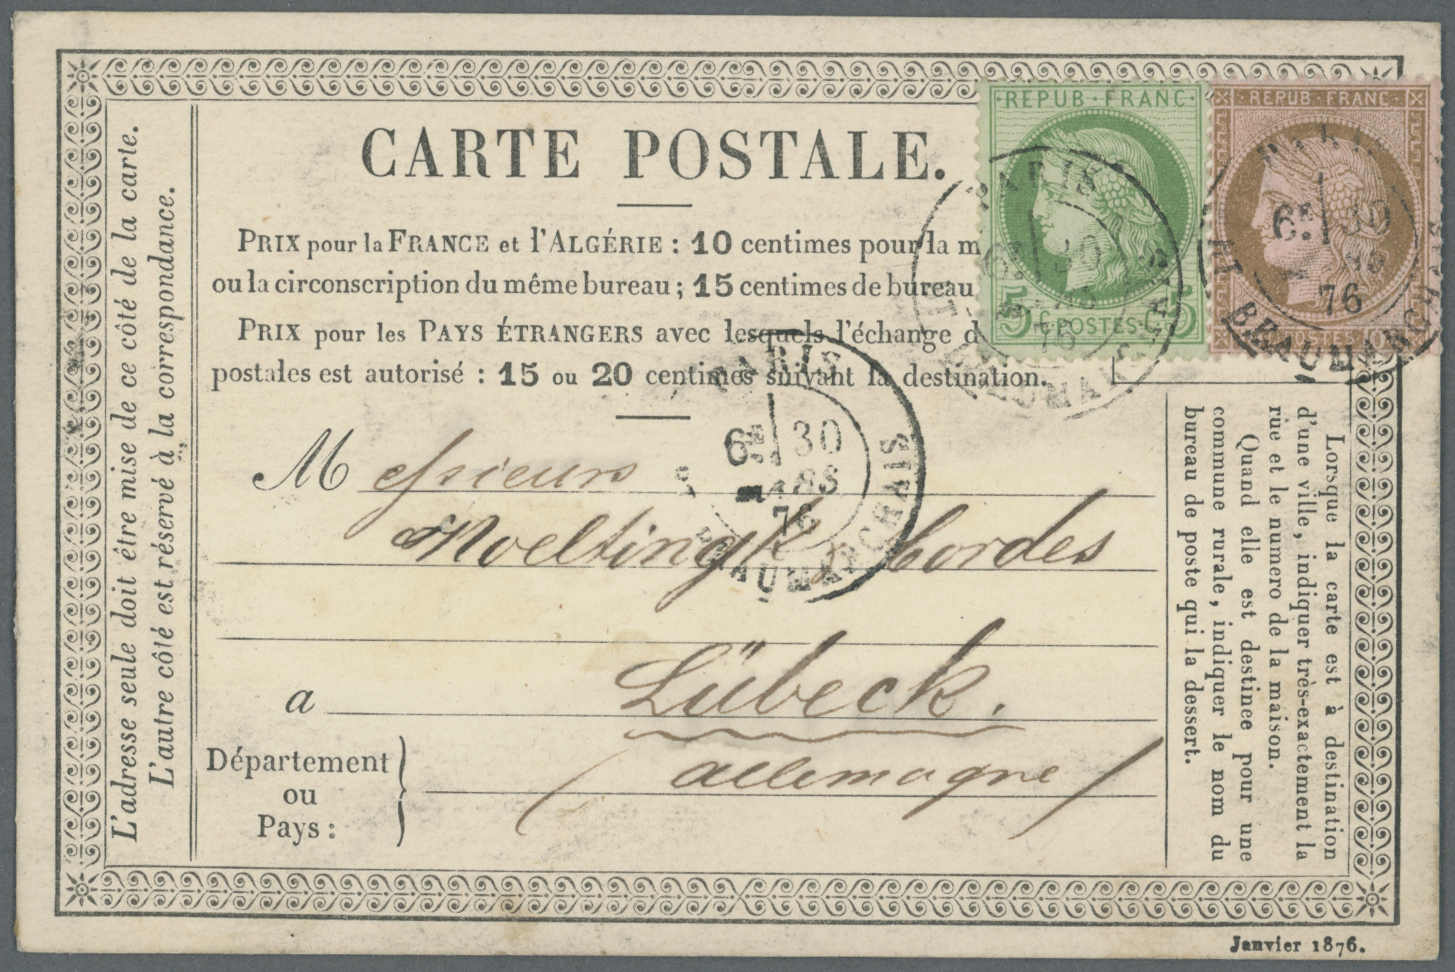 CARTE POSTALE.
REPUB·FRANC·
5 C. POSTES C. 5
REPUB·FRANC·
POSTES 10
PARIS
6E 30
MARS
76
BD BEAUMARCHAIS
PRIX pour la FRANCE et l'ALGÉRIE : 10 centimes pour la m
ou la circonscription du même bureau ; 15 centimes de bureau
PRIX pour les PAYS ÉTRANGERS avec lesquels l'échange d
postales est autorisé : 15 ou 20 centimes suivant la destination.
PARIS
6E 30
MARS
76
BEAUMARCHAIS
Messieurs
Noelting & Cordes
a Lübeck.
Département
ou
Pays :
(allemagne)
L'adresse seule doit être mise de ce côté de la carte.
L'autre côté est réservé à la correspondance.
Lorsque la carte est à destination
d'une ville, indiquer très-exactement la
rüe et le numero de la maison.
Quand elle est destinee pour une
commune rurale, indiquer le nom du
bureau de poste qui la dessert.
Janvier 1876.